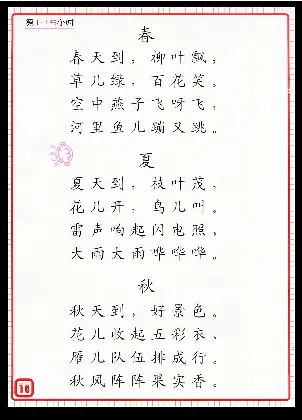 春
春天到，柳叶飘，
草儿绿，百花笑。
空中燕子飞呀飞，
河里鱼儿蹦又跳。
夏
夏天到，枝叶茂，
花儿开，鸟儿叫。
雷声响起闪电照，
大雨大雨哗哗哗。
秋
秋天到，好景色。
花儿收起五彩衣，
雁儿队伍排成行。
秋风阵阵果实香。
16